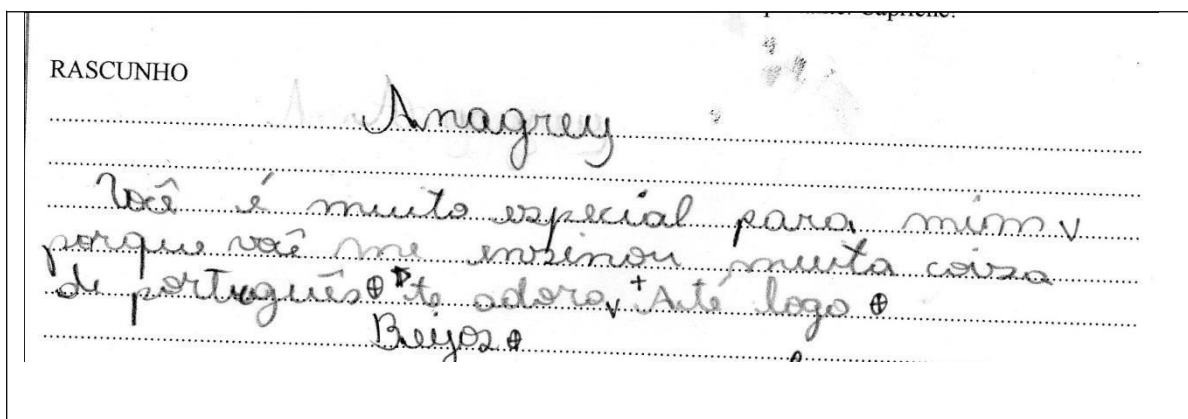 RASCUNHO
Anagrey
Você é muito especial para mim
porque você me ensinou muita coisa
de português te adoro, Até logo
Beijos